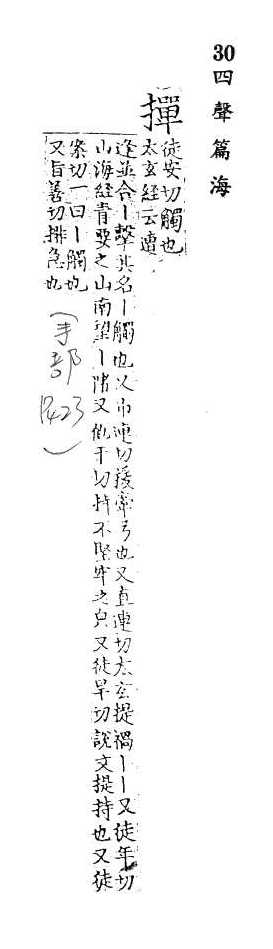 30四聲篇海
撣
徒安切觸也
太玄經云䢱
逢並合丨擊其名丨觸也又市連切援牽弓也又直連切太玄提禍丨丨又徒年切
山海經青要之山南望丨渚又他干切持不堅牢之皃又徒旱切說文提持也又徒
案切一曰丨觸也
又旨善切排急也
(手部 423)